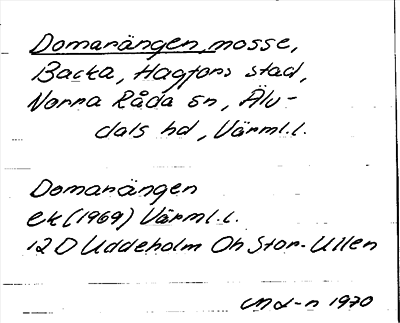 Domarängen, mosse,
Backa, Hagfors stad,
Norra Råda sn, Älv-
dals hd, Värml.l.
Domarängen
ek (1969) Värml.l.
12 D Uddeholm Oh Stor-Ullen
1970